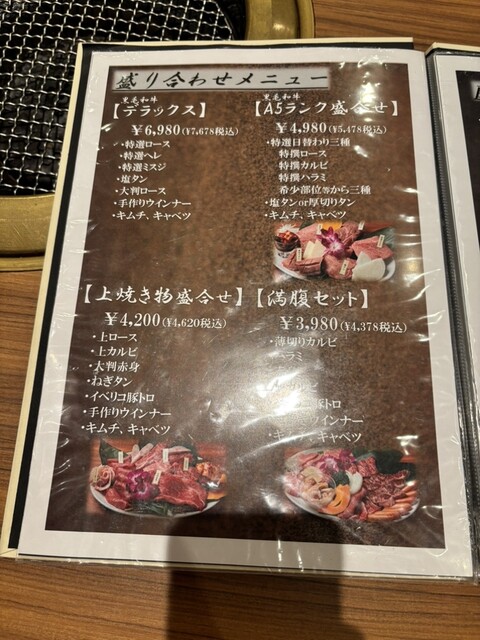 盛り合わせメニュー
黒毛和牛
【デラックス】
¥6,980(¥7,678税込)
・特選ロース
・特選ヘレ
・特選ミスジ
・塩タン
・大判ロース
・手作りウインナー
・キムチ、キャベツ
黒毛和牛
【A5ランク盛合せ】
¥4,980(¥5,478税込)
・特選日替わり三種
特撰ロース
特撰カルビ
特撰ハラミ
希少部位等から三種
・塩タンor厚切りタン
・キムチ、キャベツ
【上焼き物盛合せ】
¥4,200(¥4,620税込)
・上ロース
・上カルビ
・大判赤身
・ねぎタン
・イベリコ豚トロ
・手作りウインナー
・キムチ、キャベツ
【満腹セット】
¥3,980(¥4,378税込)
・薄切りカルビ
ハラミ
カルビ
豚トロ
ウインナー
・キムチ、キャベツ